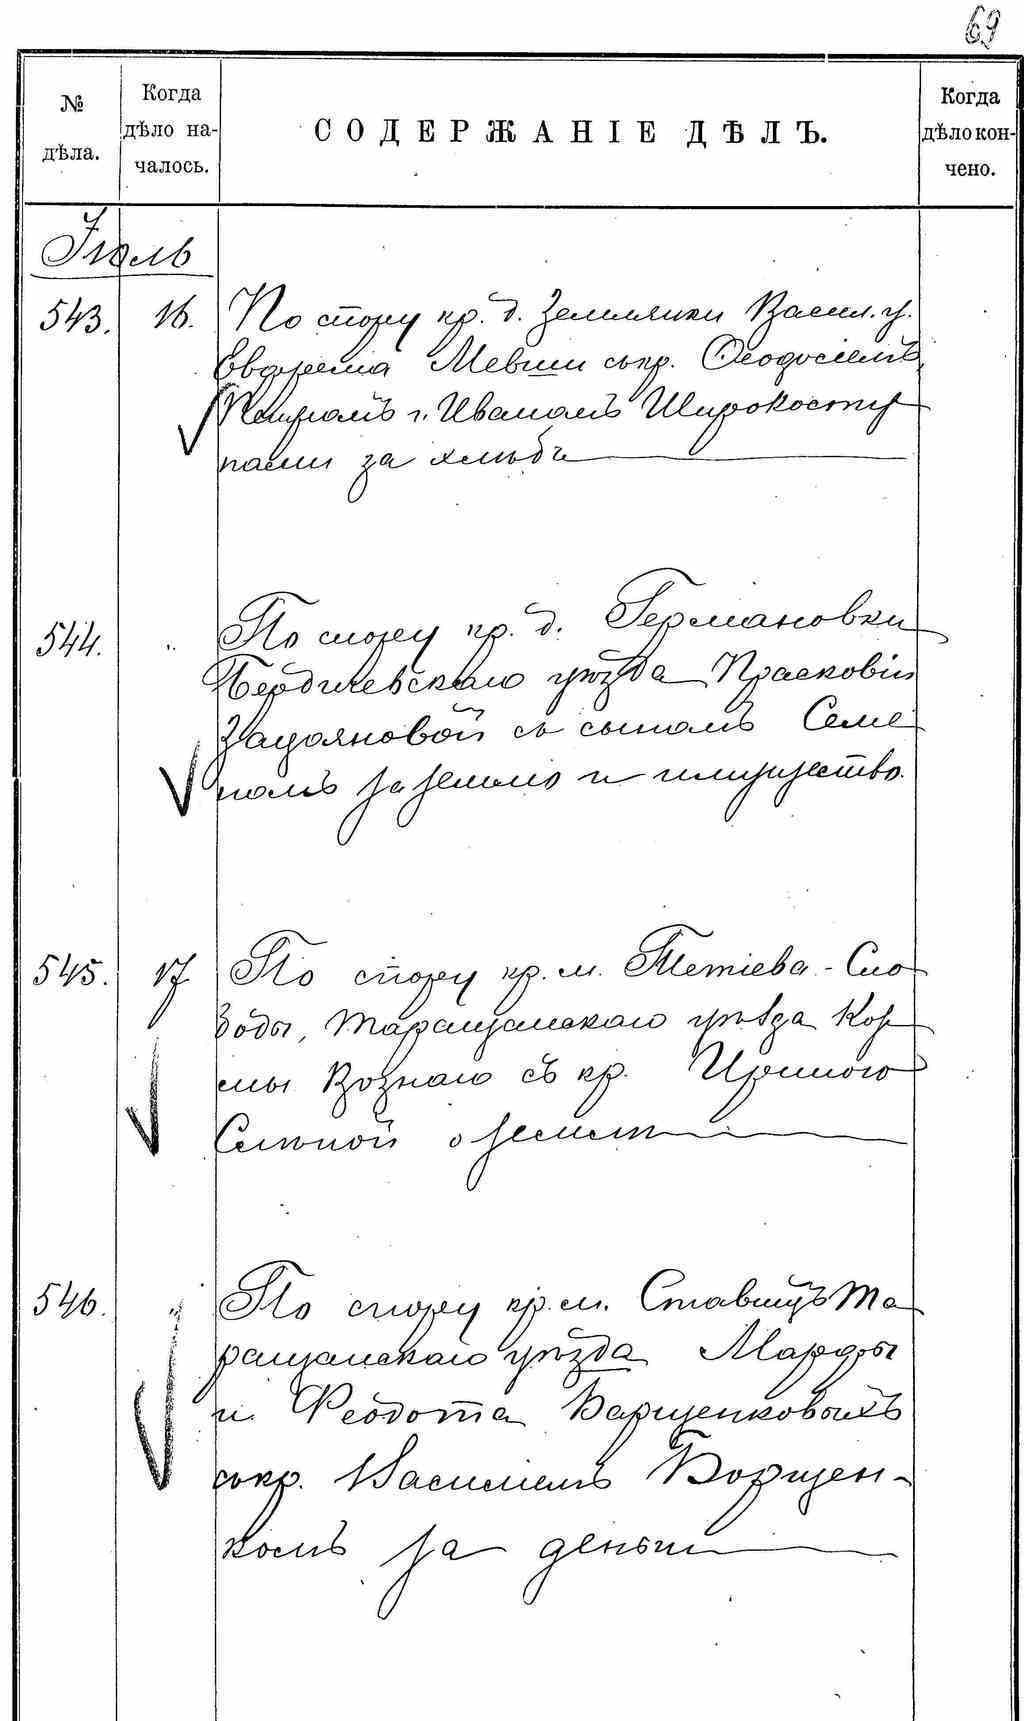 69
№ дѣла.
Когда дѣло на-чалось.
СОДЕРЖАНІЕ ДѢЛЪ.
Когда дѣло кон-чено.
Іюль
543. 16. По спору кр. д. Землянки Васил. у.
Евфрема съ кр. Феодосіемъ,
Петромъ и Иваномъ Широкосту
пами за хлѣбъ
544. " По спору кр. д. Германовки
Бердичевскаго уѣзда Прасковіи
съ сыномъ Семе
номъ за землю и имущество.
545. 17 По спору кр. м. Тетіева-Сло
боды, Таращанскаго уѣзда Коз
мы Вознаго съ кр. Ириною
о землѣ
546. " По спору кр. м. Ставищъ Та
ращанскаго уѣзда Марфы
и Феодота Барщенковыхъ
съ кр. Василіемъ Борщен-
комъ за деньги